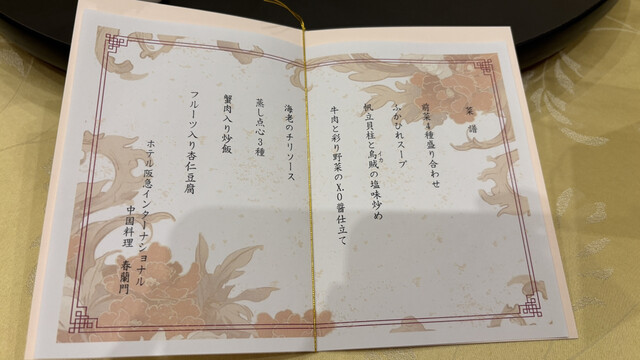 菜譜
前菜4種盛り合わせ
ふかひれスープ
帆立貝柱と烏賊イカの塩味炒め
牛肉と彩り野菜のX.O醬仕立て
海老のチリソース
蒸し点心3種
蟹肉入り炒飯
フルーツ入り杏仁豆腐
ホテル阪急インターナショナル
中国料理 春蘭門